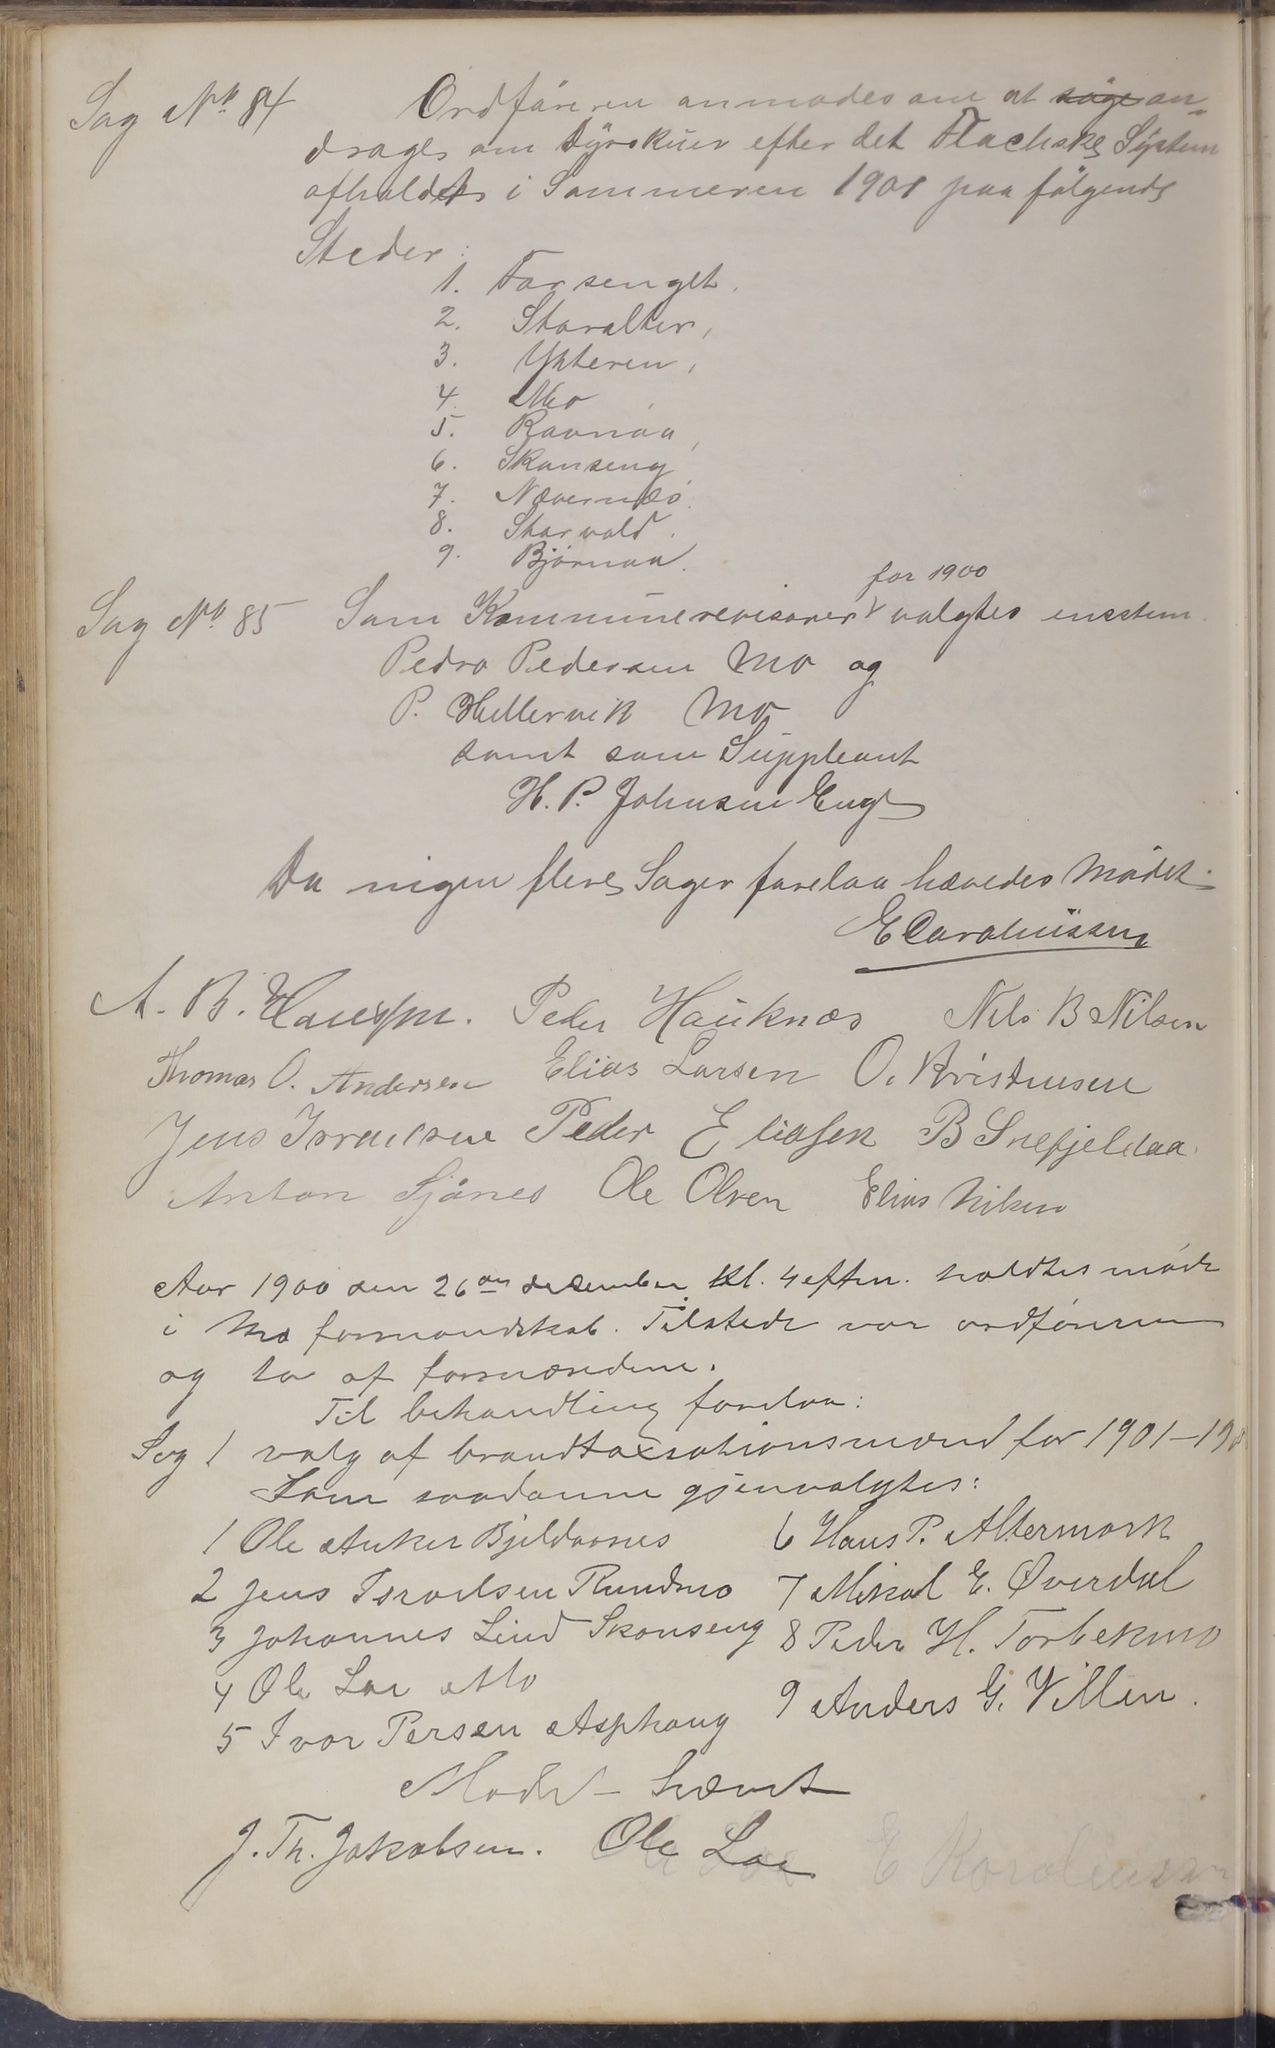 Sag No 84 Ordføreren anmodes om at søge an-
drages om Dyrskuer efter det Flachske System
afholdes i Sommeren 1901 paa følgende
Steder:
1. Forsenget.
2. Storalter,
3. Ytteren,
4. Mo
5. Ravnaa,
6. Skonseng
7. Nævernæs.
8. Storvold.
9. Bjørnaa.
for 1900
Sag No 85 Som Kommunerevisorer valgtes enstem.
Pedro Pedersen Mo og
P. Hellervik Mo
samt som Suppleant
H. P. Johnsen Enge
Da ingen flere Sager forelaa hævedes Mødet.
E Caroliussen
A. B. Peder Hauknæs Nils B Nilsen
Thomas O. Andersen Elias Larsen O. Kristensen
Jens Israelsen Peder Eliasen B Snefjeldaa.
Anton Sjånes Ole Olsen Elias Nilsen
Aar 1900 den 26de desember kl. 4 efterm. holdtes møde
i Mo formandskab. Tilstede var ordføreren
og to af formændene.
Til behandling forelaa:
Sag 1 valg af brandtaxsationsmænd for 1901-190
Som saadanne gjenvalgtes:
1 Ole Anker Bjeldaanes 6 Hans P. Altermark
2 Jens Israelsen Rundmo 7 Mikal E. Øverdal
3 Johannes Lind Skonseng 8 Peder H. Torbekmo
4 Ole Loe Mo
9 Anders G. Villen.
5 Ivar Persen Asphaug
Mødet hævet
J. Th. Jakobsen. Ole Loe E Karoliussen